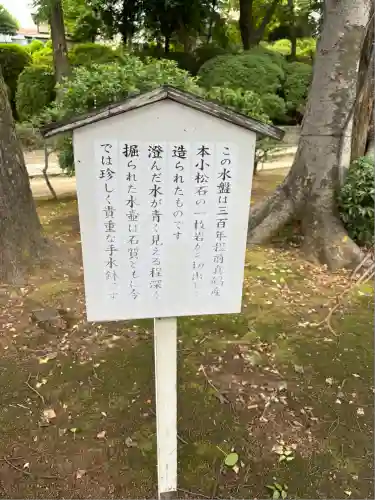 この水盤は三百年程前真鶴産
本小松石の一枚岩から切出し
造られたものです
澄んだ水が青く見える程深く
掘られた水壷は石質とともに今
では珍しく貴重な手水鉢です